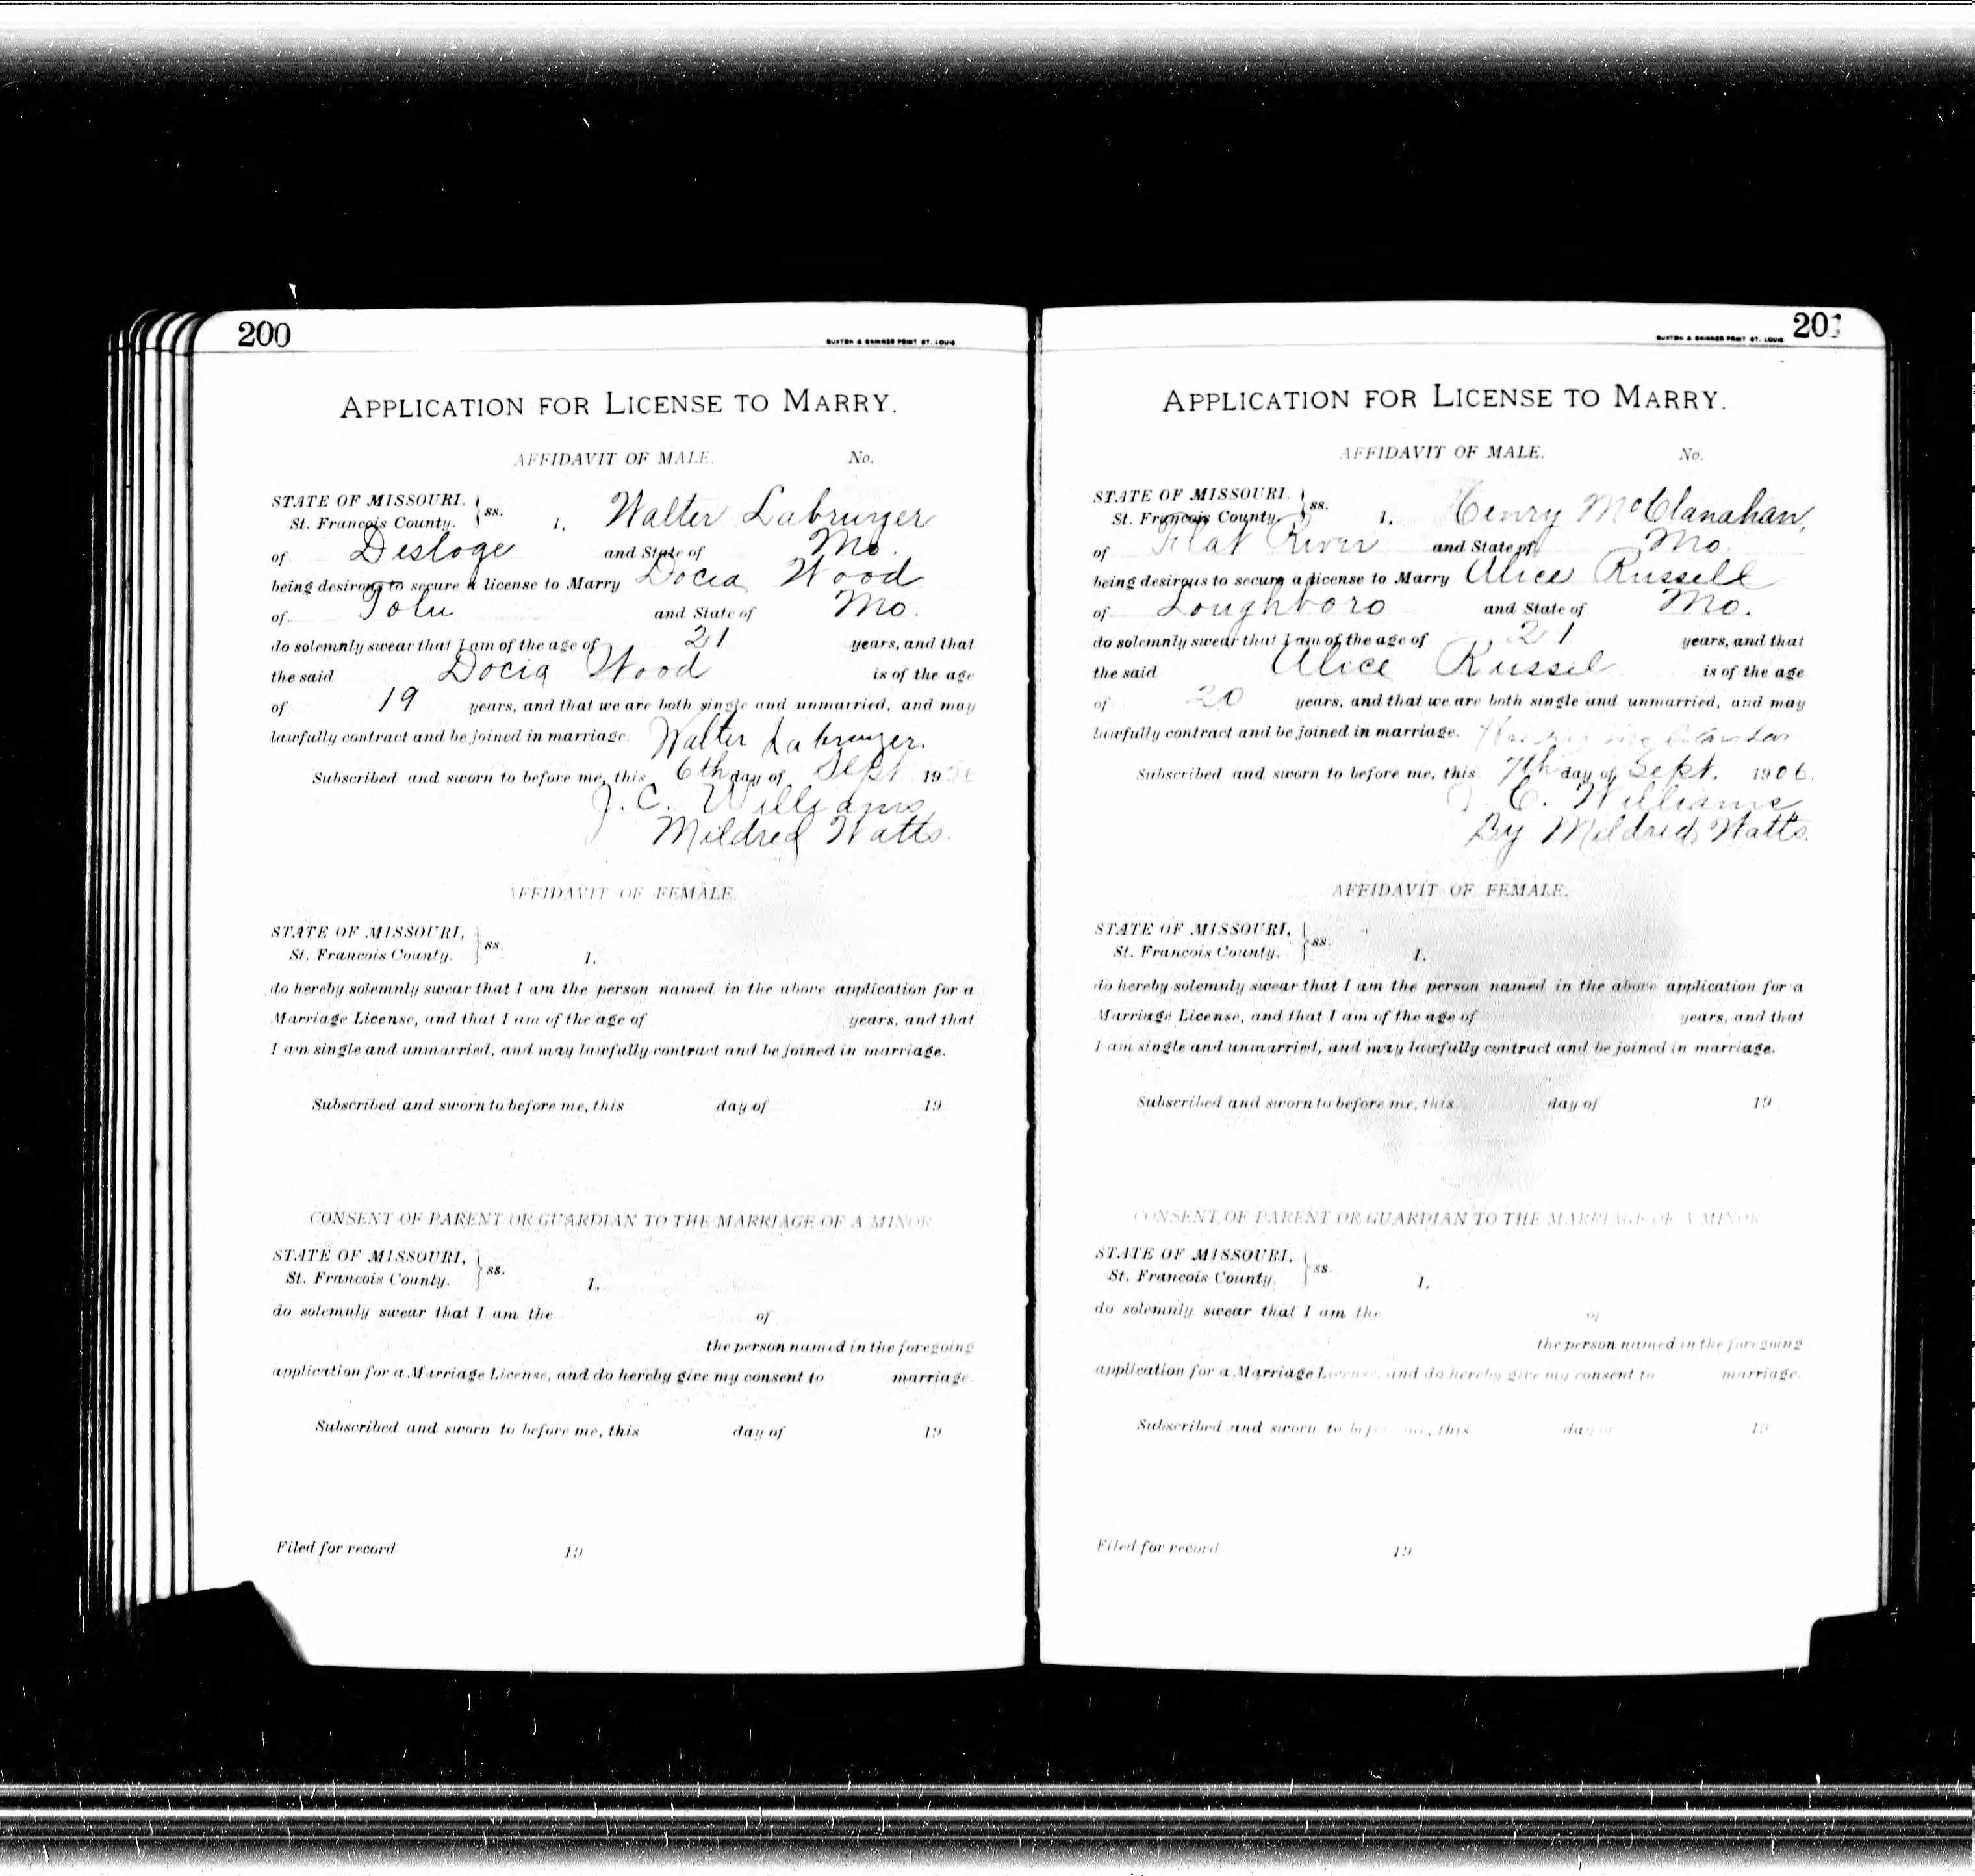 200
BUXTON & SKINNER PRINT ST. LOUIS
APPLICATION FOR LICENSE TO MARRY.
AFFIDAVIT OF MALE. No.
STATE OF MISSOURI.
St. Francois County. } ss. I, Walter Labruyer
of Desloge and State of Mo.
being desirous to secure a license to Marry Docia Wood
of Tolu and State of Mo.
do solemnly swear that I am of the age of 21 years, and that
the said Docia Wood is of the age
of 19 years, and that we are both single and unmarried, and may
lawfully contract and be joined in marriage. Walter Labruyer.
Subscribed and sworn to before me, this 6th day of Sept 19
J. C. Williams
Mildred Watts.
AFFIDAVIT OF FEMALE.
STATE OF MISSOURI,
St. Francois County. } ss. I,
do hereby solemnly swear that I am the person named in the above application for a
Marriage License, and that I am of the age of years, and that
I am single and unmarried, and may lawfully contract and be joined in marriage.
Subscribed and sworn to before me, this day of 19
CONSENT OF PARENT OR GUARDIAN TO THE MARRIAGE OF A MINOR
STATE OF MISSOURI,
St. Francois County. } ss. I,
do solemnly swear that I am the of
the person named in the foregoing
application for a Marriage License, and do hereby give my consent to marriage.
Subscribed and sworn to before me, this day of 19
Filed for record 19
201
BUXTON & SKINNER PRINT ST. LOUIS
APPLICATION FOR LICENSE TO MARRY.
AFFIDAVIT OF MALE. No.
STATE OF MISSOURI.
St. Francois County. } ss. I, Henry McClanahan,
of Flat River and State of Mo
being desirous to secure a license to Marry Alice Russell
of Loughboro and State of Mo.
do solemnly swear that I am of the age of 21 years, and that
the said Alice Russel is of the age
of 20 years, and that we are both single and unmarried, and may
lawfully contract and be joined in marriage.
Subscribed and sworn to before me, this 7th day of Sept. 1906.
J. C. Williams
By Mildred Watts.
AFFIDAVIT OF FEMALE.
STATE OF MISSOURI,
St. Francois County. } ss. I,
do hereby solemnly swear that I am the person named in the above application for a
Marriage License, and that I am of the age of years, and that
I am single and unmarried, and may lawfully contract and be joined in marriage.
Subscribed and sworn to before me, this day of 19
CONSENT OF PARENT OR GUARDIAN TO THE MARRIAGE OF A MINOR.
STATE OF MISSOURI,
St. Francois County. } ss. I,
do solemnly swear that I am the of
the person named in the foregoing
application for a Marriage License, and do hereby give my consent to marriage.
Subscribed and sworn to before me, this day of 19
Filed for record 19